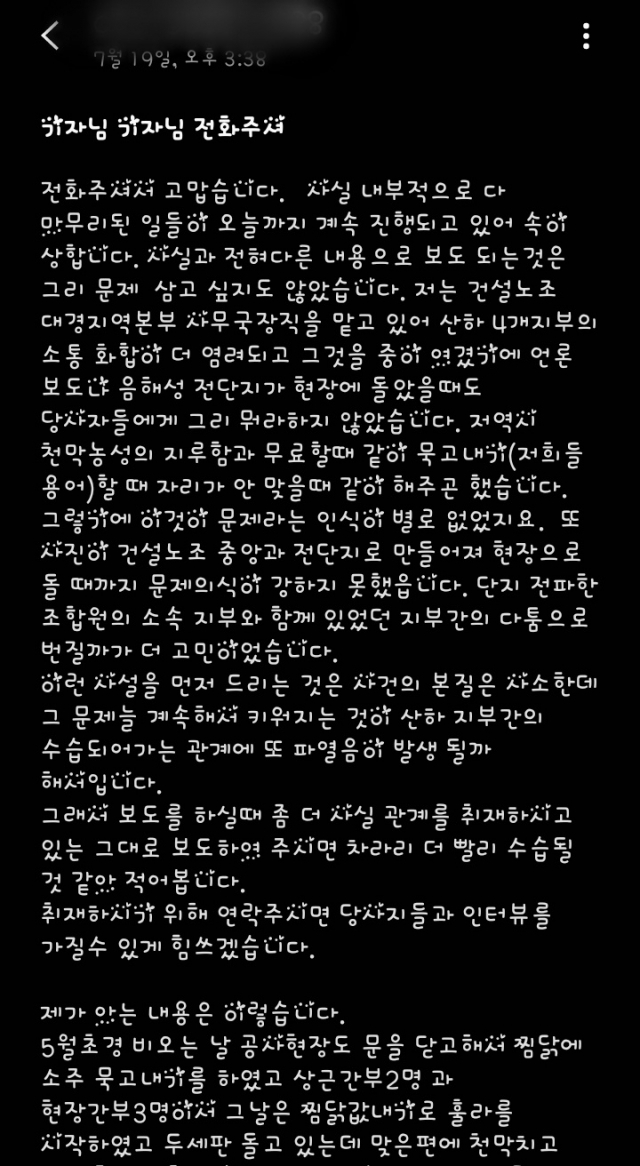 7월 19일, 오후 3:38
기자님 기자님 전화주셔
전화주셔서 고맙습니다. 사실 내부적으로 다
마무리된 일들이 오늘까지 계속 진행되고 있어 속이
상합니다. 사실과 전혀다른 내용으로 보도 되는것은
그리 문제 삼고 싶지도 않았습니다. 저는 건설노조
대경지역본부 사무국장직을 맡고 있어 산하 4개지부의
소통 화합이 더 염려되고 그것을 중이 여겼기에 언론
보도나 음해성 전단지가 현장에 돌았을때도
당사자들에게 그리 뭐라하지 않았습니다. 저역시
천막농성의 지루함과 무료할때 같이 묵고내기(저희들
용어)할 때 자리가 안 맞을때 같이 해주곤 했습니다.
그렇기에 이것이 문제라는 인식이 별로 없었지요. 또
사진이 건설노조 중앙과 전단지로 만들어져 현장으로
돌 때까지 문제의식이 강하지 못했읍니다. 단지 전파한
조합원의 소속 지부와 함께 있었던 지부간의 다툼으로
번질까가 더 고민이었습니다.
이런 사설을 먼저 드리는 것은 사건의 본질은 사소한데
그 문제늘 계속해서 키워지는 것이 산하 지부간의
수습되어가는 관계에 또 파열음이 발생 될까
해서입니다.
그래서 보도를 하실때 좀 더 사실 관계를 취재하시고
있는 그대로 보도하여 주시면 차라리 더 빨리 수습될
것 같아 적어봅니다.
취재하시기 위해 연락주시면 당사지들과 인터뷰를
가질수 있게 힘쓰겠습니다.
제가 아는 내용은 이렇습니다.
5월초경 비오는 날 공사현장도 문을 닫고해서 찜닭에
소주 묵고내기를 하였고 상근간부2명 과
현장간부3명이서 그날은 찜닭값내기로 훌라를
시작하였고 두세판 돌고 있는데 맞은편에 천막치고